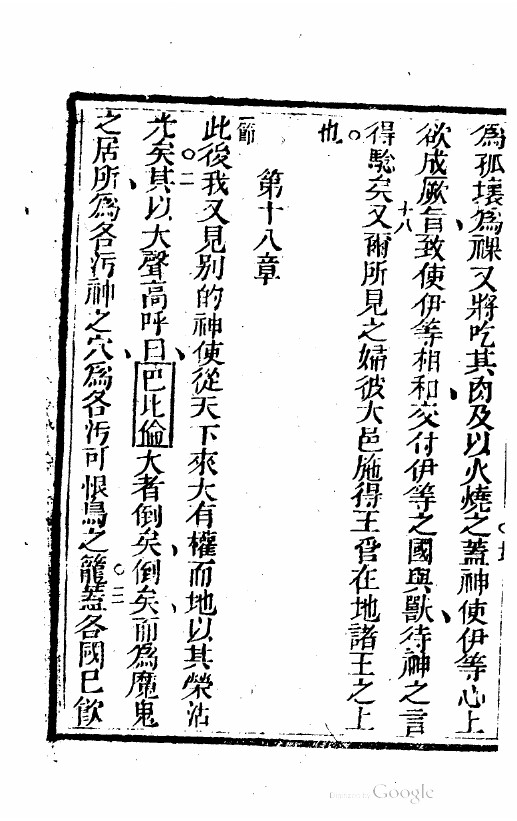 為孤壤為裸又將吃其肉及以火燒之蓋神使伊等心上
欲成厥旨致使伊等相和交付伊等之國與獸待神之言
得騐矣十八又爾所見之婦彼大邑施得王管在地諸王之上
也
第十八章
一節
此後我又見別的神使從天下來大有權而地以其榮沾
光矣二其以大聲高呼曰巴比倫大者倒矣倒矣而為魔鬼
之居所為各污神之穴為各污可恨鳥之籠三蓋各國已飲
Digitized by Google